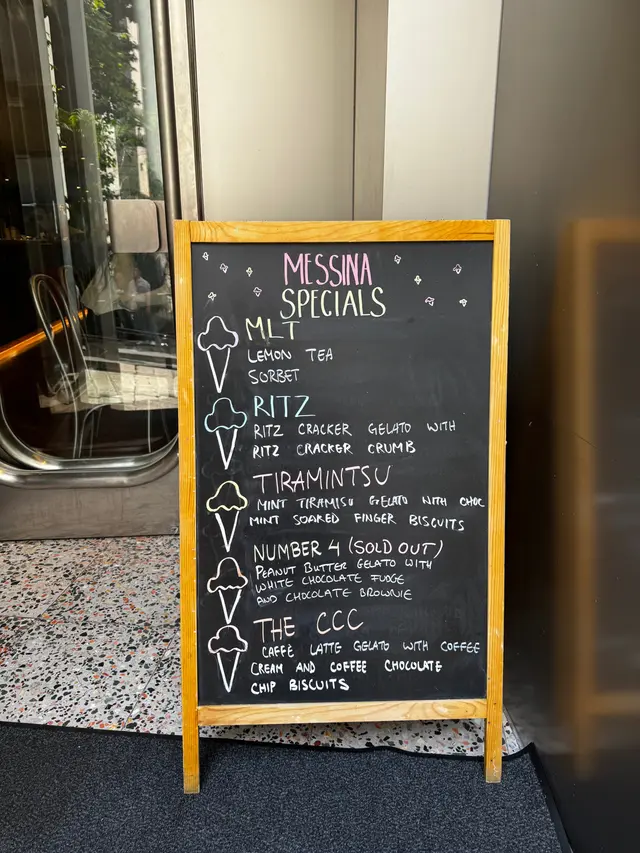 MESSINA
SPECIALS
MLT
LEMON TEA
SORBET
RITZ
RITZ CRACKER GELATO WITH
RITZ CRACKER CRUMB
TIRAMINTSU
MINT TIRAMISU GELATO WITH CHOC
MINT SOAKED FINGER BISCUITS
NUMBER 4 (SOLD OUT)
PEANUT BUTTER GELATO WITH
WHITE CHOCOLATE FUDGE
AND CHOCOLATE BROWNIE
THE CCC
CAFFÈ LATTE GELATO WITH COFFEE
CREAM AND COFFEE CHOCOLATE
CHIP BISCUITS